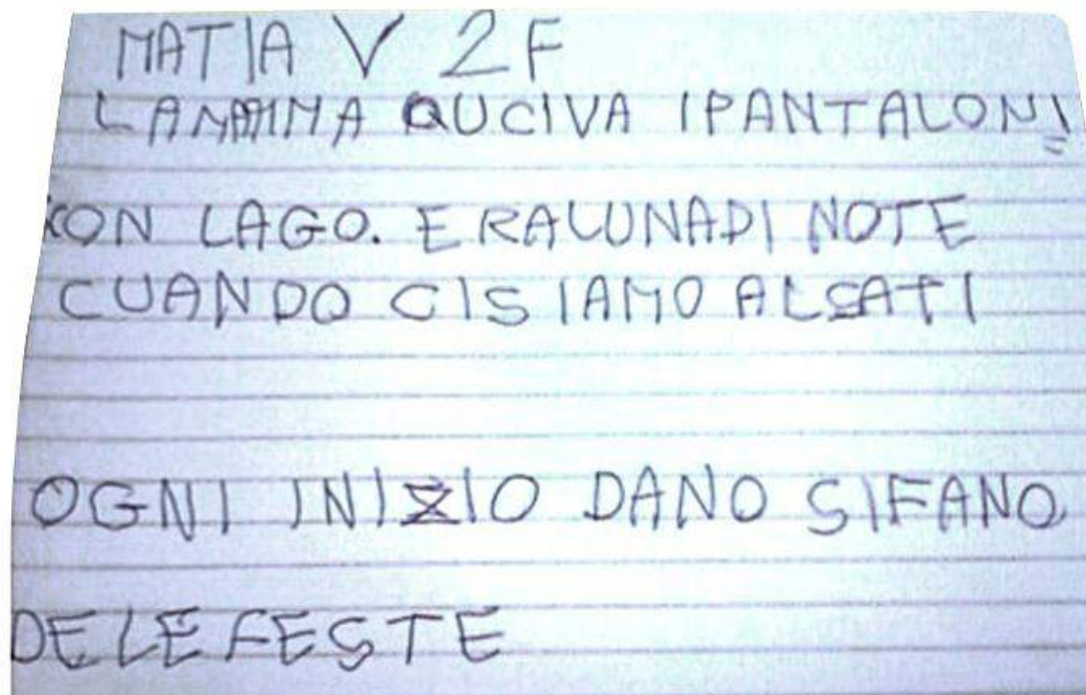 MATIA V 2F
LAMAMMA QUCIVA IPANTALONI
CON LAGO. ERALUNADI NOTE
CUANDO CISIAMO ALSATI
OGNI INIZIO DANO SIFANO
DELE FESTE